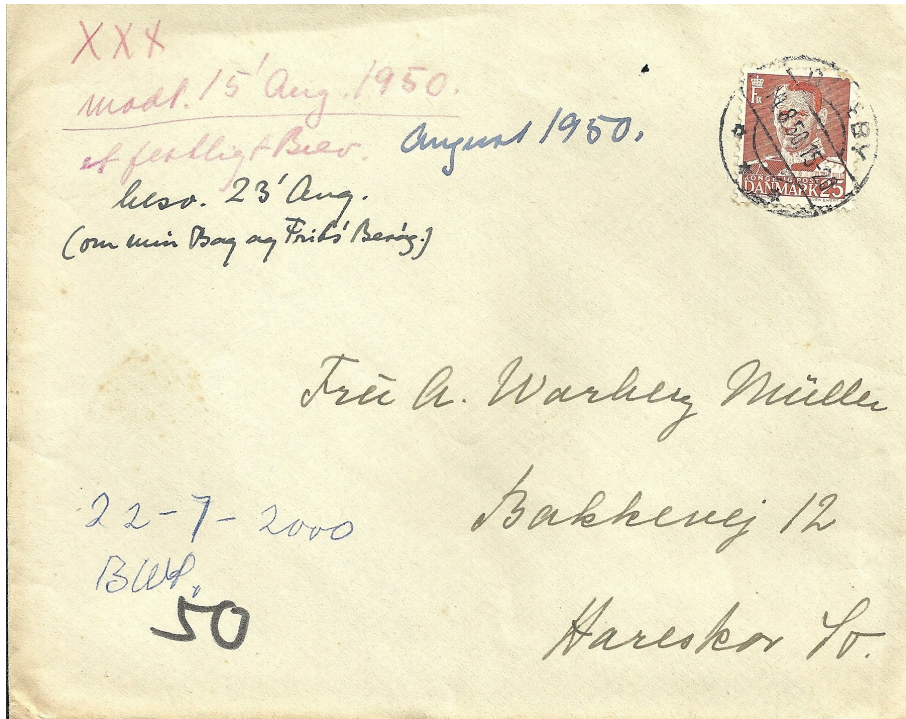 XXX
modt. 15' Aug. 1950.
et festligt Brev.
August 1950.
besv. 23' Aug.
(om min Bog og Frits' Besøg.)
8.50 15-
DANMARK 25
Fru A. Warberg Müller
Bakkevej 12
Hareskov St.
22-7-2000
BWP.
50